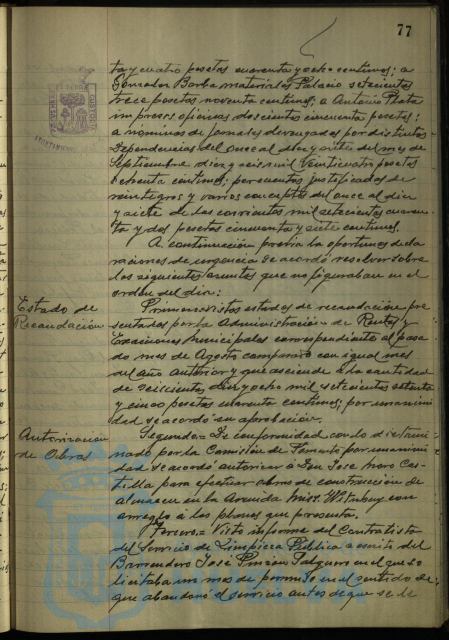 77
ta y cuatro pesetas cuarenta y ocho centimos; a
Gonzalez Barba materiales Palacio setecientas
trece pesetas noventa centimos; a Antonio Plata
impresos oficinas doscientas cincuenta pesetas;
a nominas de jornales devengados por distintas
dependencias del once al diez y siete del mes de
Septiembre diez y seis mil veinticuatro pesetas
ochenta centimos; por cuentas justificadas de
reintegros y varios conceptos del once al diez
y siete de los corrientes mil setecientas cuaren-
ta y dos pesetas cincuenta y siete centimos.
A continuación previa la oportuna decla
raciones de urgencia se acordó resolver sobre
los siguientes asuntos que no figuraban en el
orden del dia:
Estado de
Recaudación
Primero= Vistos estados de recaudación pre
sentados por la Administración de Rentas y
Exacciones Municipales correspondiente al pasa
do mes de Agosto comparado con igual mes
del año anterior y que asciende a la cantidad
de seiscientas diez y ocho mil setecientas setenta
y cinco pesetas cuarenta centimos; por unanimi
dad se acordó su aprobación.
Autorizacion
de Obras
Segundo= De conformidad con lo dictami
nado por la Comisión de Fomento por unanimi
dad se acordó autorizar a Don Jose Haro Cas-
tilla para efectuar obras de construcción de
almacen en la Avenida Miss. Whitney con
arreglo a los planos que presenta.
Tercero= Visto informe del Contratista
del Servicio de Limpieza Pública a escrito del
Barrendero José Pinzón Salguero en el que so
licitaba un mes de permiso en el sentido de
que abandonó el servicio antes de que se le